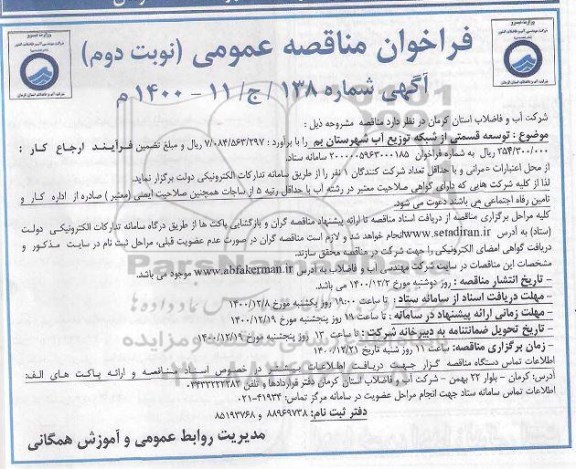 فراخوان مناقصه عمومی (نوبت دوم)
آگهی شماره ۱۳۸/ج/۱۱ - ۱۴۰۰ م
شرکت آب و فاضلاب استان کرمان در نظر دارد مناقصه مشروحه ذیل :
موضوع : توسعه قسمتی از شبکه توزیع آب شهرستان بم را با برآورد : ۷/۰۸۴/۵۶۳/۲۹۷ ریال و مبلغ تضمین فرآیند ارجاع کار :
۲۵۴/۳۰۰/۰۰۰ ریال به شماره فراخوان ۲۰۰۰۰۰۵۹۶۳۰۰۰۱۸۵ سامانه ستاد.
از محل اعتبارات عمرانی و با حداقل تعداد شرکت کنندگان ۱ نفر را از طریق سامانه تدارکات الکترونیکی دولت برگزار نماید.
لذا از کلیه شرکت هایی که دارای گواهی صلاحیت معتبر در رشته آب با حداقل رتبه ۵ از ساجات همچنین صلاحیت ایمنی (معتبر) صادره از اداره کار و
تامین رفاه اجتماعی می باشند دعوت می شود.
کلیه مراحل برگزاری مناقصه از دریافت اسناد مناقصه تا ارائه پیشنهاد مناقصه گران و بازگشایی پاکت ها از طریق درگاه سامانه تدارکات الکترونیکی دولت
(ستاد) به آدرس www.setadiran.ir انجام خواهد شد و لازم است مناقصه گران در صورت عدم عضویت قبلی، مراحل ثبت نام در سایت مذکور و
دریافت گواهی امضای الکترونیکی را جهت شرکت در مناقصه محقق سازند.
مشخصات این مناقصات در سایت شرکت مهندسی آب و فاضلاب به آدرس www.abfakerman.ir موجود می باشد.
- تاریخ انتشار مناقصه : روز دوشنبه مورخ ۱۴۰۰/۱۲/۲ می باشد.
- مهلت دریافت اسناد از سامانه ستاد : تا ساعت ۱۹:۰۰ روز یکشنبه مورخ ۱۴۰۰/۱۲/۸
- مهلت زمانی ارائه پیشنهاد در سامانه : تا ساعت ۱۹ روز پنجشنبه مورخ ۱۴۰۰/۱۲/۱۹
- تاریخ تحویل ضمانتنامه به دبیرخانه شرکت : تا ساعت ۱۳ روز پنجشنبه مورخ ۱۴۰۰/۱۲/۱۹
- زمان برگزاری مناقصه: ساعت ۱۱ روز شنبه تاریخ ۱۴۰۰/۱۲/۲۱
اطلاعات تماس دستگاه مناقصه گزار جهت دریافت اطلاعات بیشتر در خصوص اسناد مناقصه و ارائه پاکت های الف:
آدرس: کرمان - بلوار ۲۲ بهمن - شرکت آب و فاضلاب استان کرمان دفتر قراردادها و تلفن ۰۳۴۳۳۲۲۲۲۸۲
اطلاعات تماس سامانه ستاد جهت انجام مراحل عضویت در سامانه مرکز تماس: ۴۱۹۳۴-۰۲۱
دفتر ثبت نام: ۸۸۹۶۹۷۳۸ و ۸۵۱۹۳۷۶۸
مدیریت روابط عمومی و آموزش همگانی